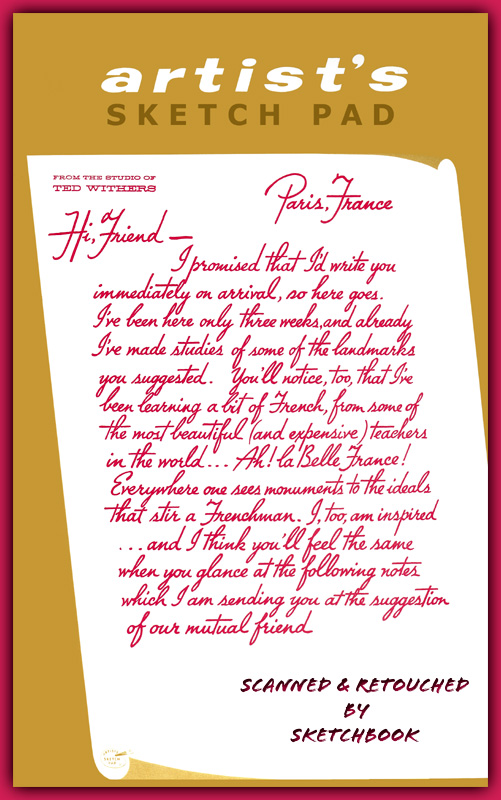 artist's
SKETCH PAD
FROM THE STUDIO OF
TED WITHERS
Paris, France
Hi, Friend —
I promised that I'd write you
immediately on arrival, so here goes.
I've been here only three weeks, and already
I've made studies of some of the landmarks
you suggested. You'll notice, too, that I've
been learning a bit of French, from some of
the most beautiful (and expensive) teachers
in the world... Ah! la Belle France!
Everywhere one sees monuments to the ideals
that stir a Frenchman. I, too, am inspired
...and I think you'll feel the same
when you glance at the following notes
which I am sending you at the suggestion
of our mutual friend
SCANNED & RETOUCHED
BY
SKETCHBOOK
ARTIST'S
SKETCH
PAD